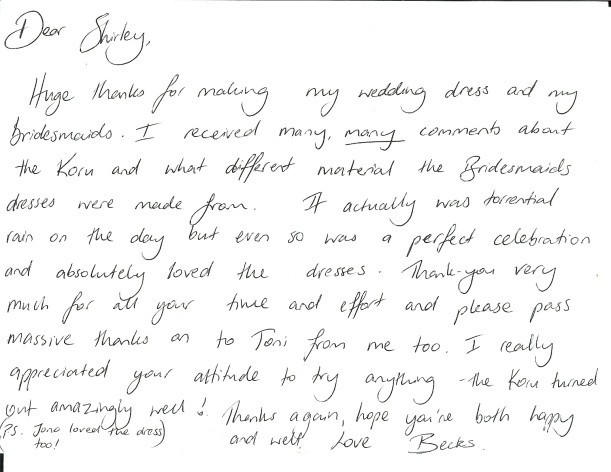 Dear Shirley,
Huge thanks for making my wedding dress and my
bridesmaids. I received many, many comments about
the Koru and what different material the Bridesmaids
dresses were made from. It actually was torrential
rain on the day but even so was a perfect celebration
and absolutely loved the dresses. Thank-you very
much for all your time and effort and please pass
massive thanks on to Toni from me too. I really
appreciated your attitude to try anything - the Koru turned
out amazingly well! Thanks again, hope you're both happy
(PS. Jono loved the dress) and well Love Becks.
too!